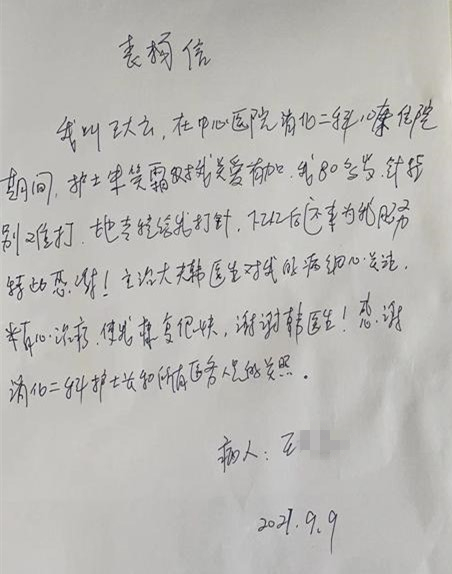 表扬信
我叫王大云,在中心医院消化二科住院
期间,护士笑霜对我关爱有加.我80多岁,针特
别难打.她专程给我打针,下班后还来为我服务
特此感谢!主治大夫韩医生对我的病细心关注.
精心治疗.使我康复很快,谢谢韩医生!感谢
消化二科护士长和所有医务人员的关照。
病人:王
2021.9.9